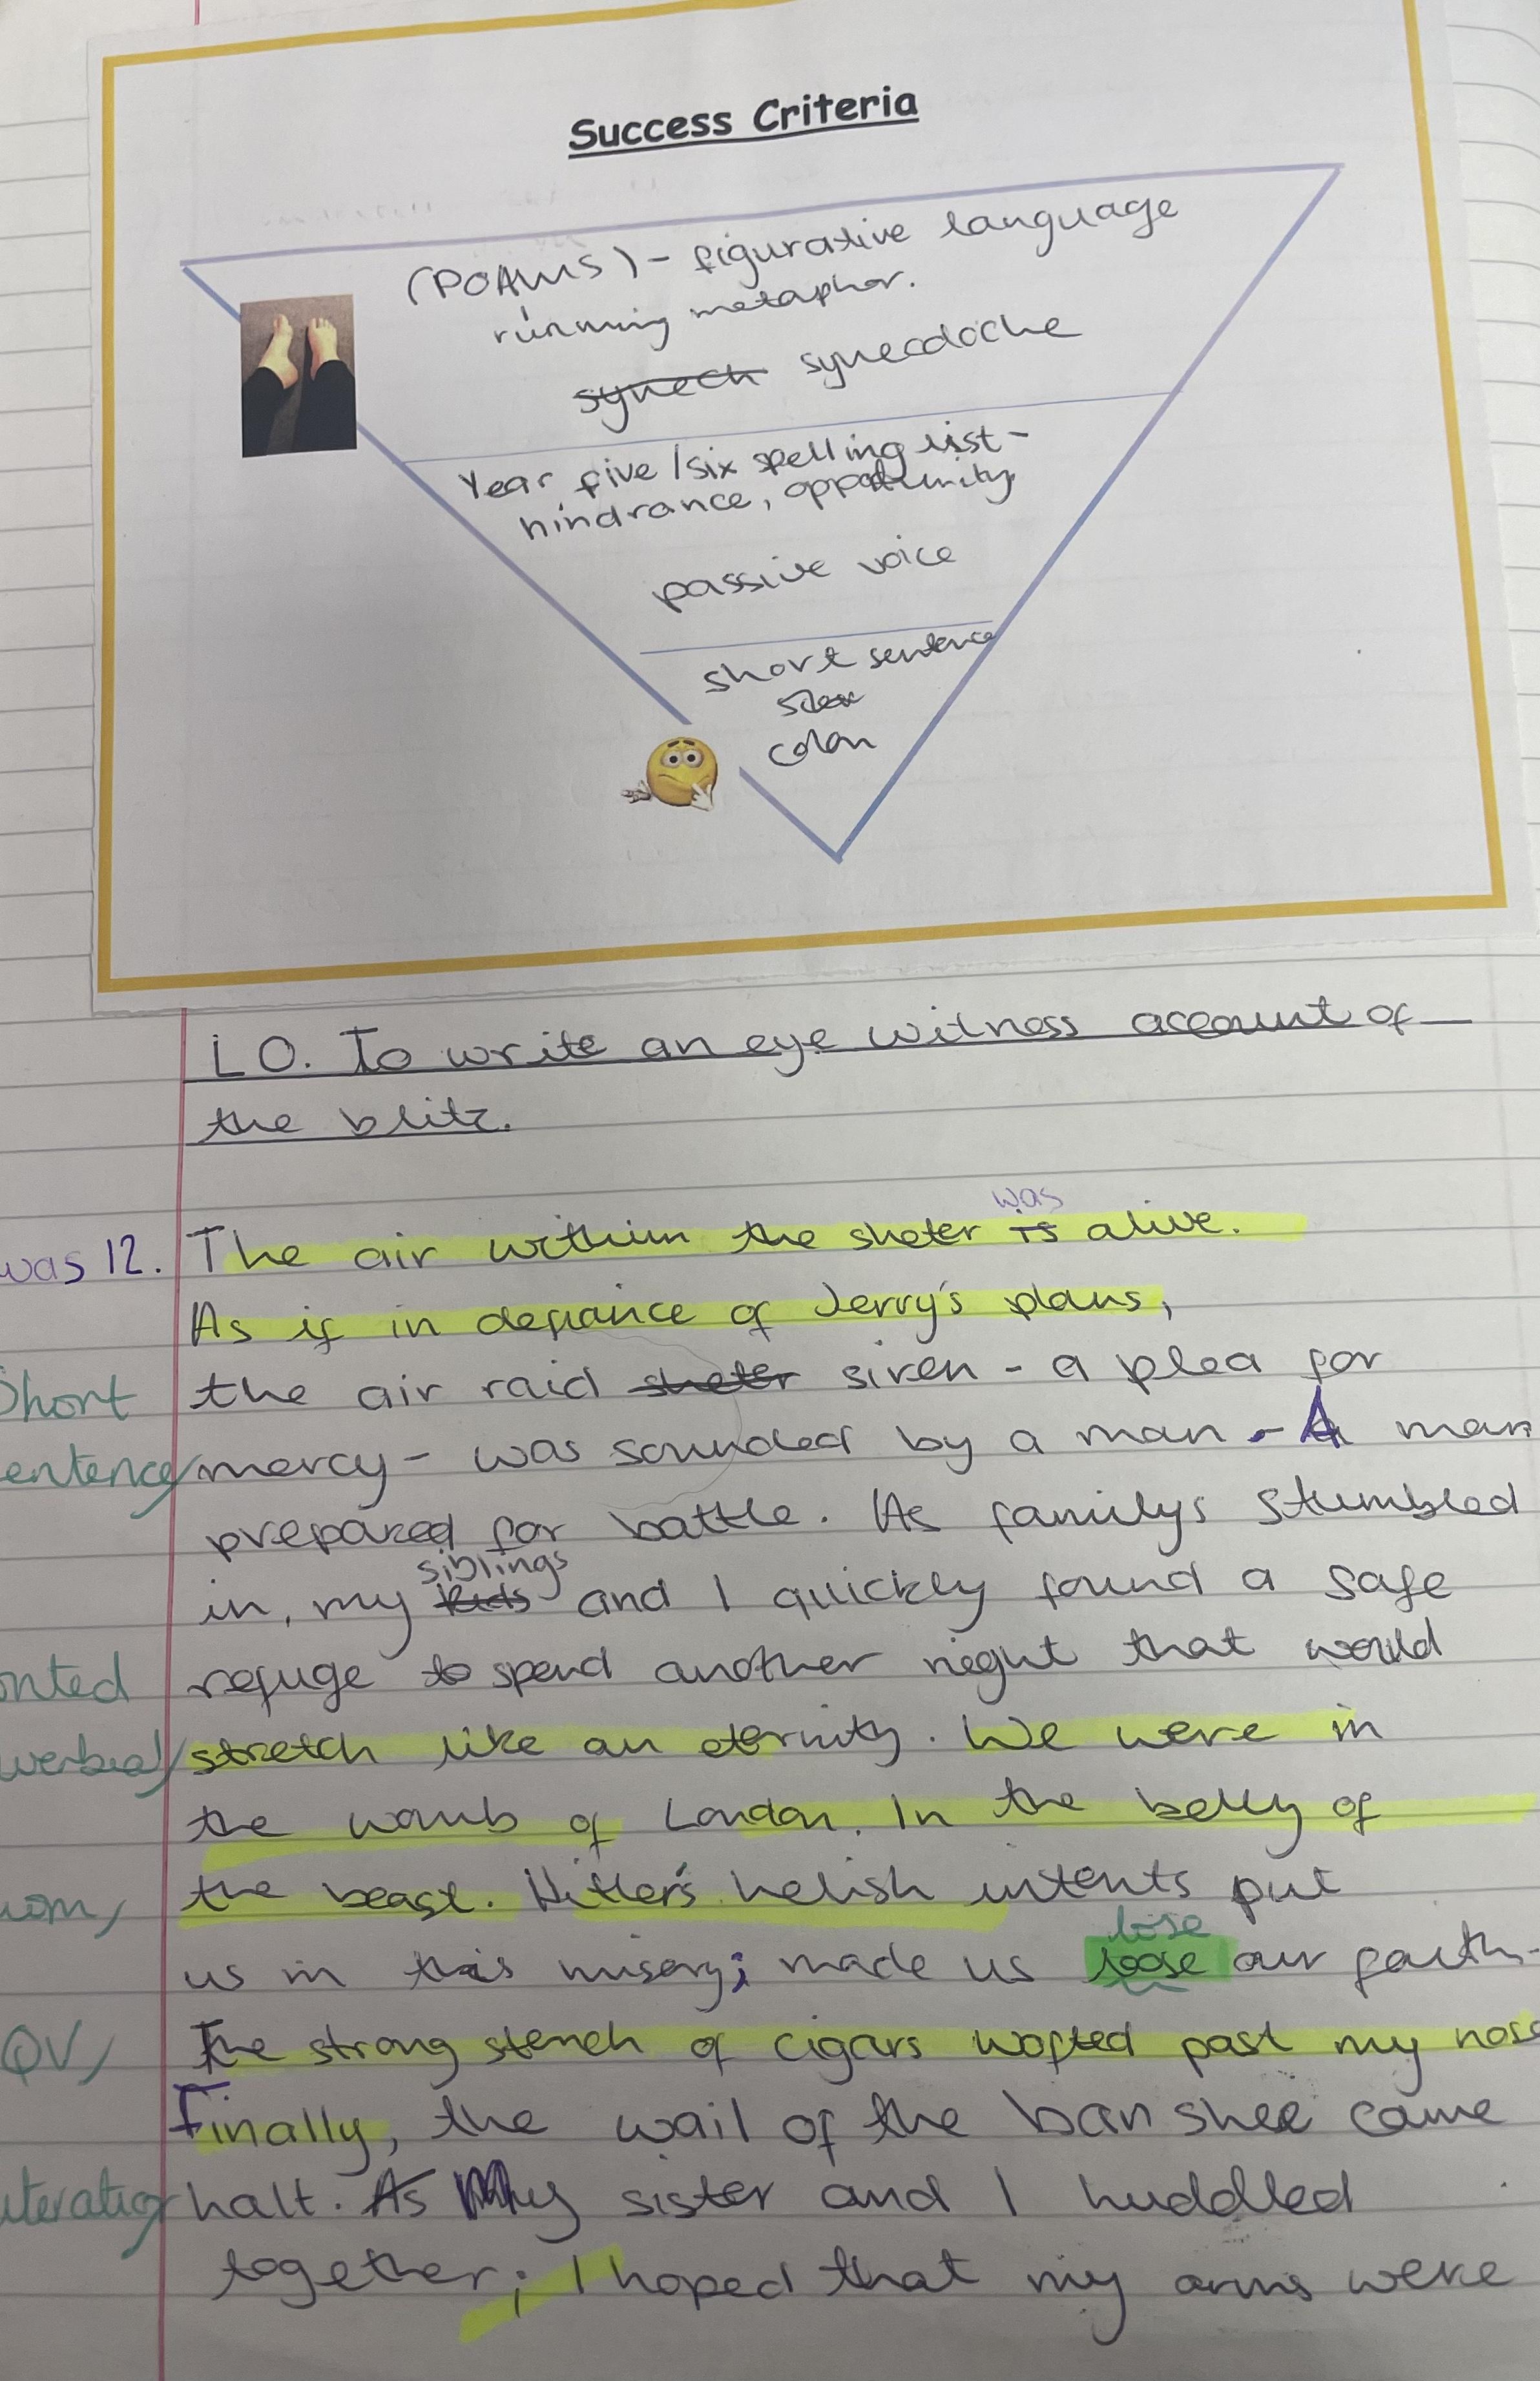 Success Criteria
(POAMS) - figurative language
running metaphor.
synech synecdoche
Year five/six spelling list -
hindrance, oppotunity
passive voice
short sentence
colon
LO. To write an eye witness account of
the blitz.
was
was 12. The air within the sheter is alive.
As if in defiance of Jerry's plans,
Short the air raid sheter siren - a plea for
entence/ mercy - was sounded by a man - A man
prepared for battle. As familys stumbled
siblings
in, my kids and I quickly found a safe
onted refuge to spend another night that would
verbial/ stretch like an eternity. We were in
the womb of London. In the belly of
the beast. Hitler's helish intents put
lose
us in this misery; made us loose our faith.
QV/ The strong stench of cigars wafted past my nose
Finally, the wail of the banshee came
halt. As My sister and I huddled
together; I hoped that my arms were